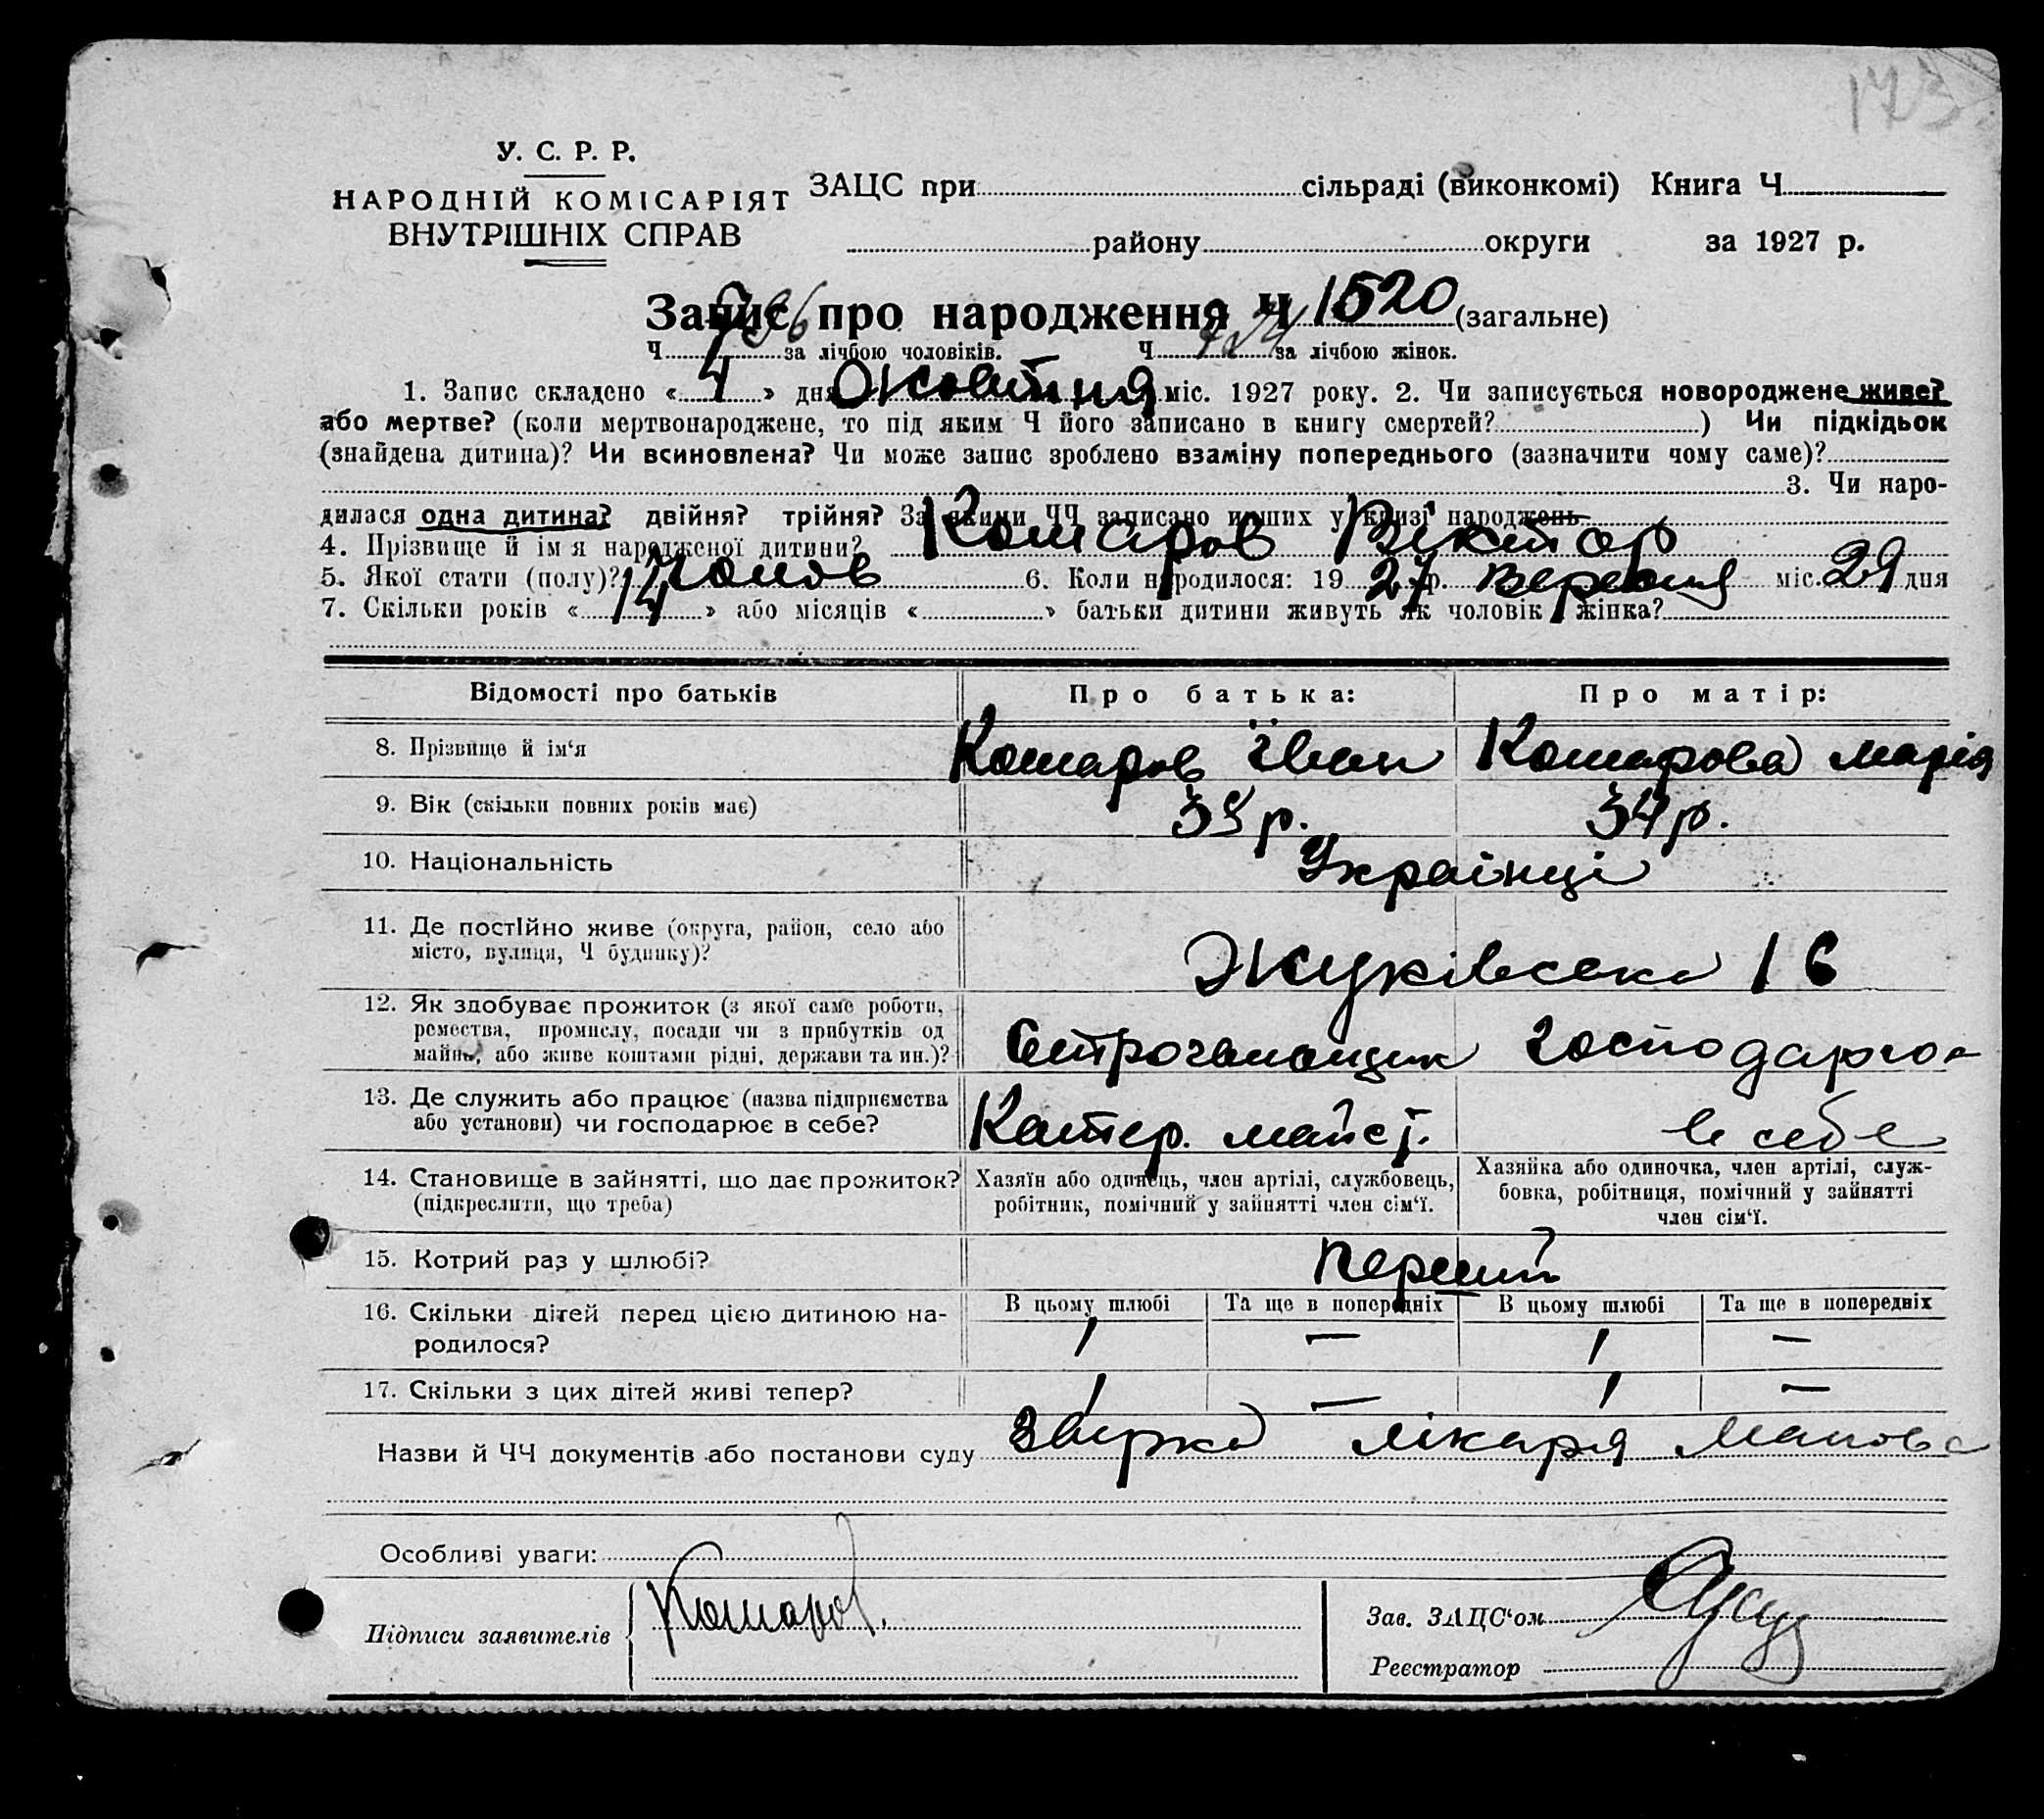 173
У. С. Р. Р.
НАРОДНІЙ КОМІСАРІЯТ
ВНУТРІШНІХ СПРАВ
ЗАЦС при сільраді (виконкомі) Книга Ч
району округи за 1927 р.
Запис про народження Ч 1520 (загальне)
Ч за лічбою чоловіків. Ч за лічбою жінок.
1. Запис складено « 4 » дня Жовтня міс. 1927 року. 2. Чи записується новороджене живе?
або мертве? (коли мертвонароджене, то під яким Ч його записано в книгу смертей? ) Чи підкідьок
(знайдена дитина)? Чи всиновлена? Чи може запис зроблено взаміну попереднього (зазначити чому саме)?
3. Чи наро-
дилася одна дитина? двійня? трійня? За якими ЧЧ записано инших у книзі народжень
4. Прізвище й ім'я народженої дитини? Комаров Віктор
5. Якої стати (полу)? Чолов 6. Коли народилося: 19 27 р. Вересня міс. 29 дня
7. Скільки років « 14 » або місяців « » батьки дитини живуть як чоловік і жінка?
Відомості про батьків Про батька: Про матір:
8. Прізвище й ім'я Комаров Іван Комарова Марія
9. Вік (скільки повних років має) р. 34 р.
10. Національність Українці
11. Де постійно живе (округа, район, село або
місто, вулиця, Ч будинку)? Жуківська 16
12. Як здобуває прожиток (з якої саме роботи,
ремества, промислу, посади чи з прибутків од
майна, або живе коштами рідні, держави та ин.)? Строгальщик Господарює
13. Де служить або працює (назва підприємства
або установи) чи господарює в себе? Катер. майст. в себе
14. Становище в зайнятті, що дає прожиток?
(підкреслити, що треба)
Хазяїн або одинець, член артілі, службовець,
робітник, помічний у зайнятті член сім'ї.
Хазяйка або одиночка, член артілі, служ-
бовка, робітниця, помічний у зайнятті
член сім'ї.
15. Котрий раз у шлюбі? перший
16. Скільки дітей перед цією дитиною на-
родилося?
В цьому шлюбі Та ще в попередніх В цьому шлюбі Та ще в попередніх
1 — 1 —
17. Скільки з цих дітей живі тепер? 1 — 1 —
Назви й ЧЧ документів або постанови суду лікаря
Особливі уваги:
Підписи заявителів Комаров.
Зав. ЗАЦС'ом
Реєстратор